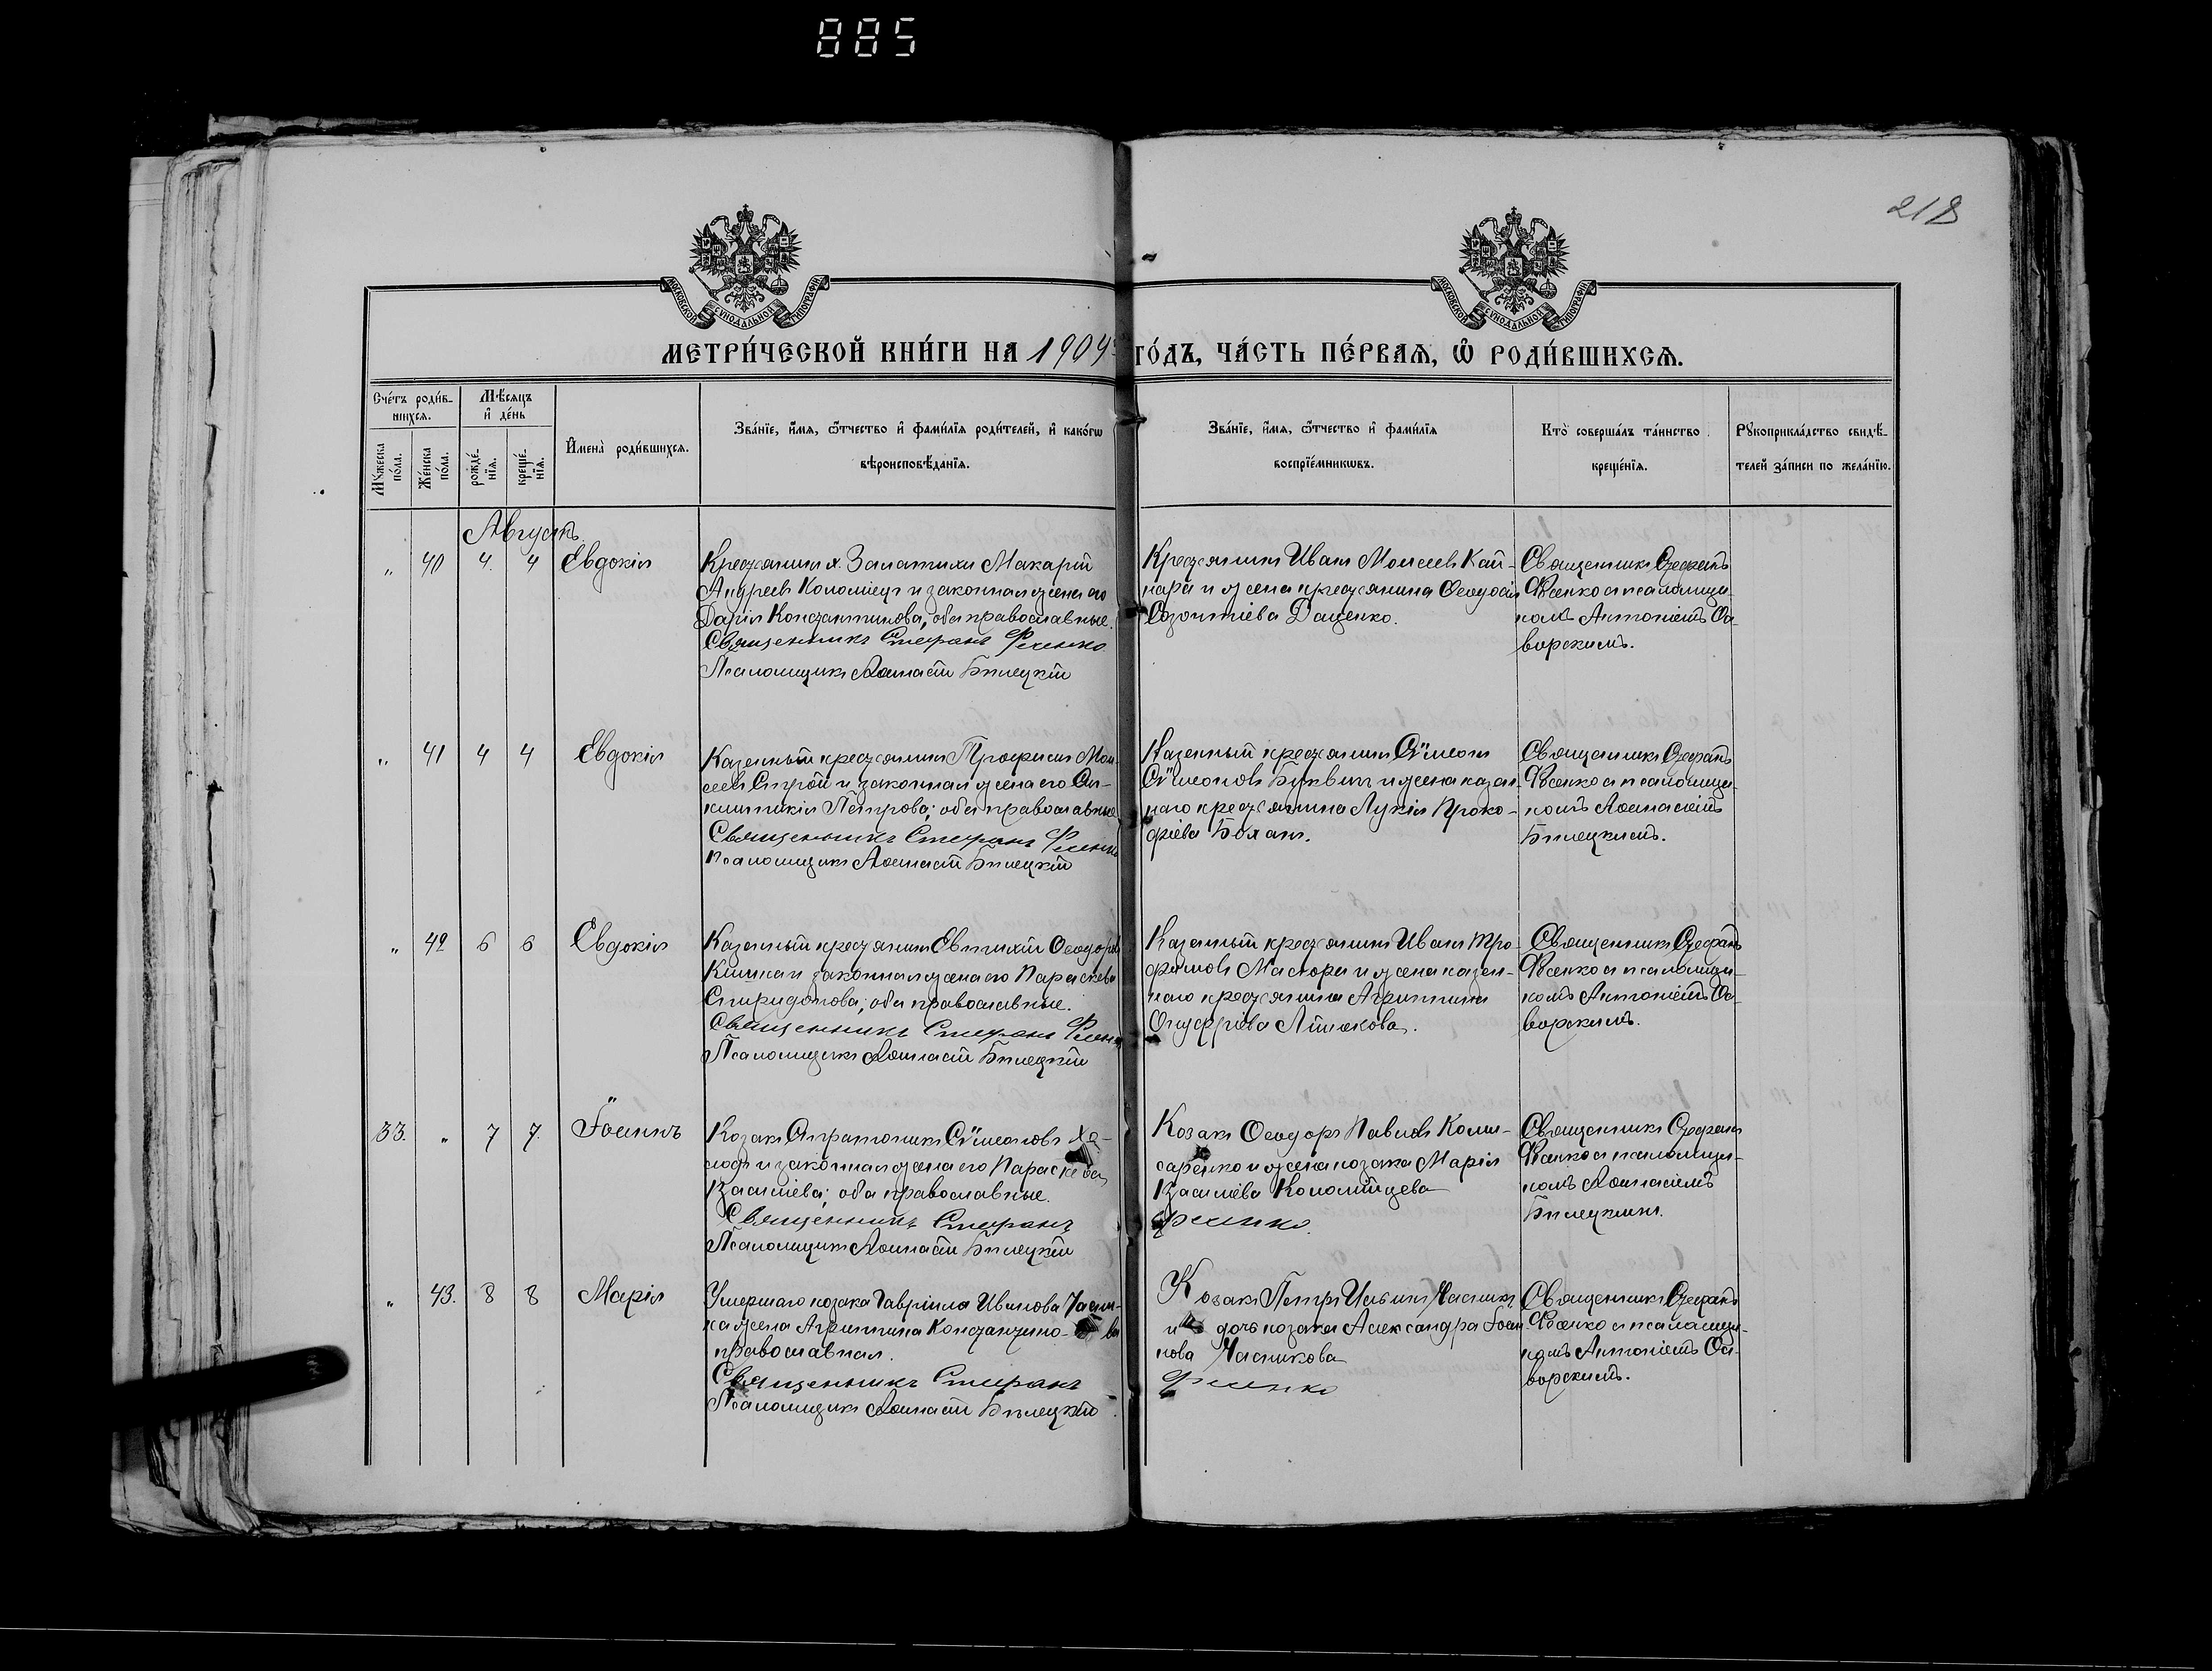 885
218
МОСКОВСКОЙ СѴНОДАЛЬНОЙ ТИПОГРАФІИ
МОСКОВСКОЙ СѴНОДАЛЬНОЙ ТИПОГРАФІИ
МЕТРИ́ЧЕСКОЙ КНИ́ГИ НА 1904 ГО́ДЪ, ЧА́СТЬ ПЕ́РВАЯ, Ѽ РОДИ́ВШИХСЯ.
Сче́тъ роди́в-
шихся.
Мѣ́сяцъ
и҆ де́нь
Мꙋ́жеска по́ла.
Же́нска по́ла.
рожде́-нїя.
креще́-нїя.
И҆мена̀ роди́вшихся.
Зва́нїе, и҆́мя, ѻ҆́тчество и҆ фами́лїя роди́телей, и҆ како́гѡ
вѣроисповѣ́данїя.
Зва́нїе, и҆́мя, ѻ҆́тчество и҆ фами́лїя
воспрїе́мникѡвъ.
Кто̀ соверша́лъ та́инство
креще́нїя.
Рꙋкоприкла́дство свидѣ́-
телей за́писи по жела́нїю.
Августъ.
„ 40 4. 4 Евдокія
Крестьянинъ Макарій
Андреевъ Коломіецъ и законная жена его
Дарія Константинова, оба православные.
Священникъ Стефанъ
Псаломщикъ Аѳанасій Билецкій
Крестьянинъ Иванъ Моисеевъ Кай-
нара и жена крестьянина Ѳеодосія
Созонтіева Даценко.
Священникъ Стефанъ
и псаломщи-
комъ Антоніемъ Са-
ворскимъ.
„ 41 4 4 Евдокія
Казенный крестьянинъ Трофимъ Мои-
сеевъ и законная жена его
Петрова; оба православные
Священникъ Стефанъ
Псаломщикъ Аѳанасій Билецкій
Казенный крестьянинъ Сѵмеонъ
Сѵмеоновъ и жена казен-
наго крестьянина Лукія Проко-
фіева Боханъ.
Священникъ Стефанъ
и псаломщи-
комъ Аѳанасіемъ
Билецкимъ.
„ 42 6 6 Евдокія
Казенный крестьянинъ Евтихій Ѳеодоровъ
Кишка и законная жена его Параскева
Спиридонова; оба православные.
Священникъ Стефанъ
Псаломщикъ Аѳанасій Билецкій
Казенный крестьянинъ Иванъ Тро-
фимовъ и жена казен-
наго крестьянина Агриппина
Онуфріева
Священникъ Стефанъ
и псаломщи-
комъ Антоніемъ Са-
ворскимъ.
33. „ 7 7. Іоаннъ
Козакъ Сѵмеоновъ
и законная жена его Параскева
Василіева; оба православные.
Священникъ Стефанъ
Псаломщикъ Аѳанасій Билецкій
Козакъ Ѳеодоръ Павловъ Коми-
саренко и жена козака Марія
Василіева Коломійцева
Священникъ Стефанъ
и псаломщи-
комъ Аѳанасіемъ
Билецкимъ.
„ 43. 8 8 Марія
Умершаго козака Гавріила Иванова Часни-
ка жена Агриппина Константино- ва
православная.
Священникъ Стефанъ
Псаломщикъ Аѳанасій Билецкій
Козакъ Петръ Часникъ
и дочь козака Александра Іоан-
нова Часникова
Священникъ Стефанъ
и псаломщи-
комъ Антоніемъ Са-
ворскимъ.